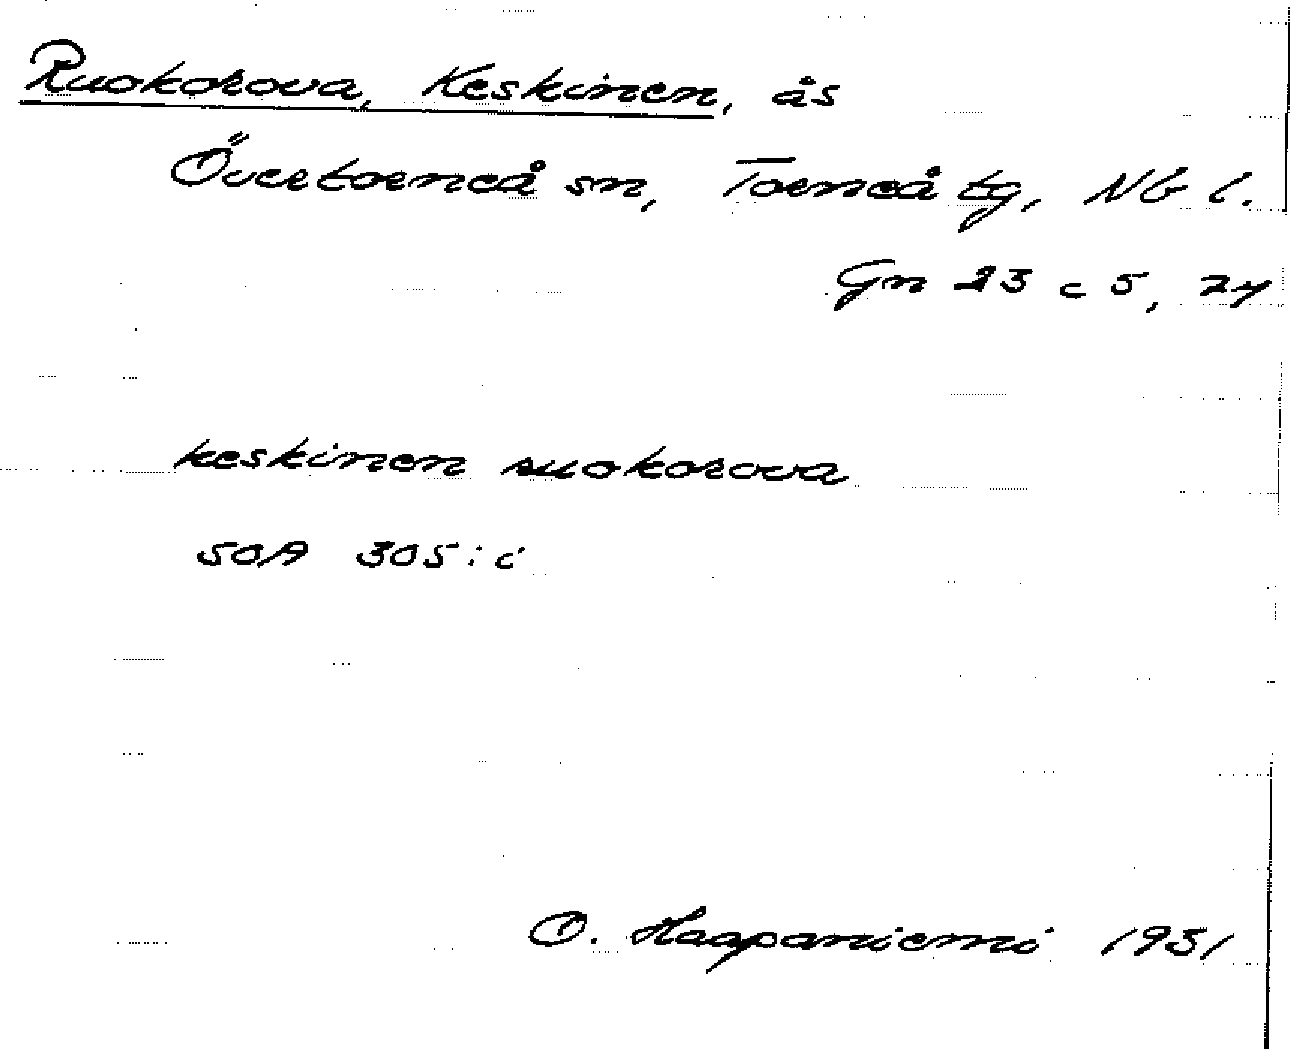 Ruokorova, Keskinen, ås
Övertorneå sn, Torneå tg, Nb l.
Gn 23 c 5, 24
keskinen ruokorova
SOA 305:c
O. Haapaniemi 1931